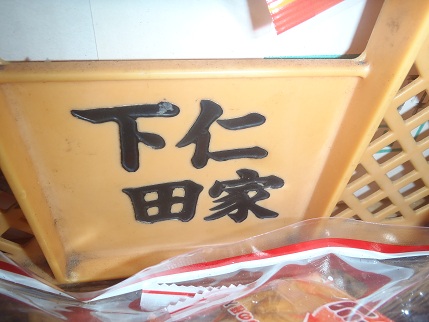 下仁
田家